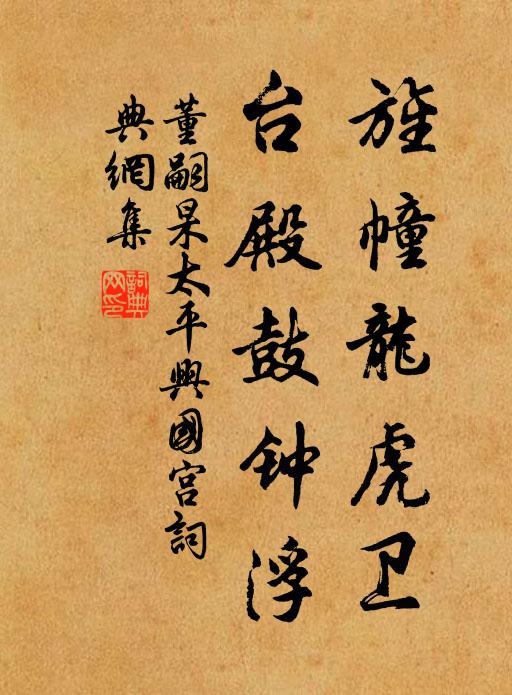 旌幢龍虎卫
台殿鼓钟浮
董嗣杲太平興國宫詞
典網集
詞典网印